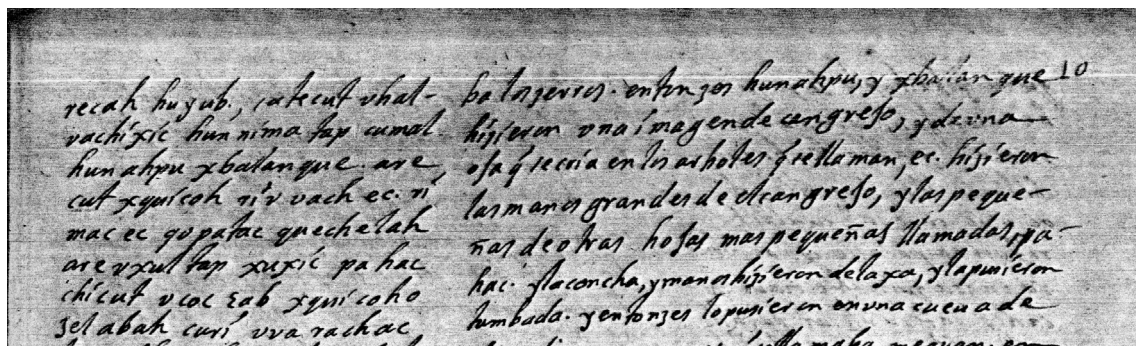 10
recah huyub., catecut vhal-
vachixic hun nima tap cumal
hunahpu xbalanque. are
cut xquicoh ri v vach ec. ri
mac ec qo patac quechelah
are vxul tap xuxic pa hac
chicut v coc ɛab xquicoho
zel abah curi vva rachac
ba los zerros. entonzes hunahpu, y xbalanque
hizieron vna imagen de cangrejo, y de vna
oja q̃ se cria en los arboles q̃ se llaman, ec. hizieron
las manos grandes de el cangrejo, y las peque-
ñas de otras hojas mas pequeñas llamadas, pa-
hac. y la concha, y manos hizieron de laxa, y la pusieron
tumbada. y entonzes lo pusieron en vna cueua de